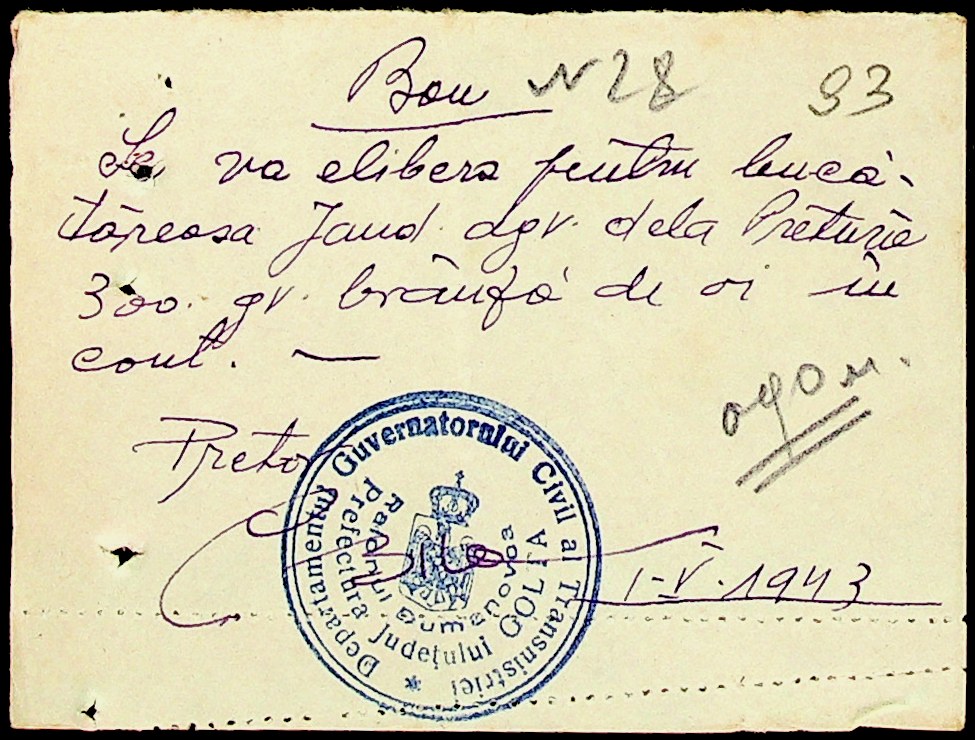 Bon N 28 93
Se va elibera pentru bucă-
tăreasa Jand. agr. dela Pretură
300. gr. brânză de oi în
cont. —
Pretor
I-V-1943
Departamentul Guvernatorului Civil al Transnistriei
Prefectura Județului GOLTA
Raionul Dumanovca